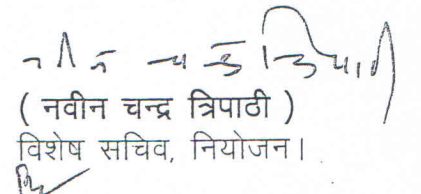 नवीन चन्द्र त्रिपाठी
( नवीन चन्द्र त्रिपाठी )
विशेष सचिव, नियोजन।